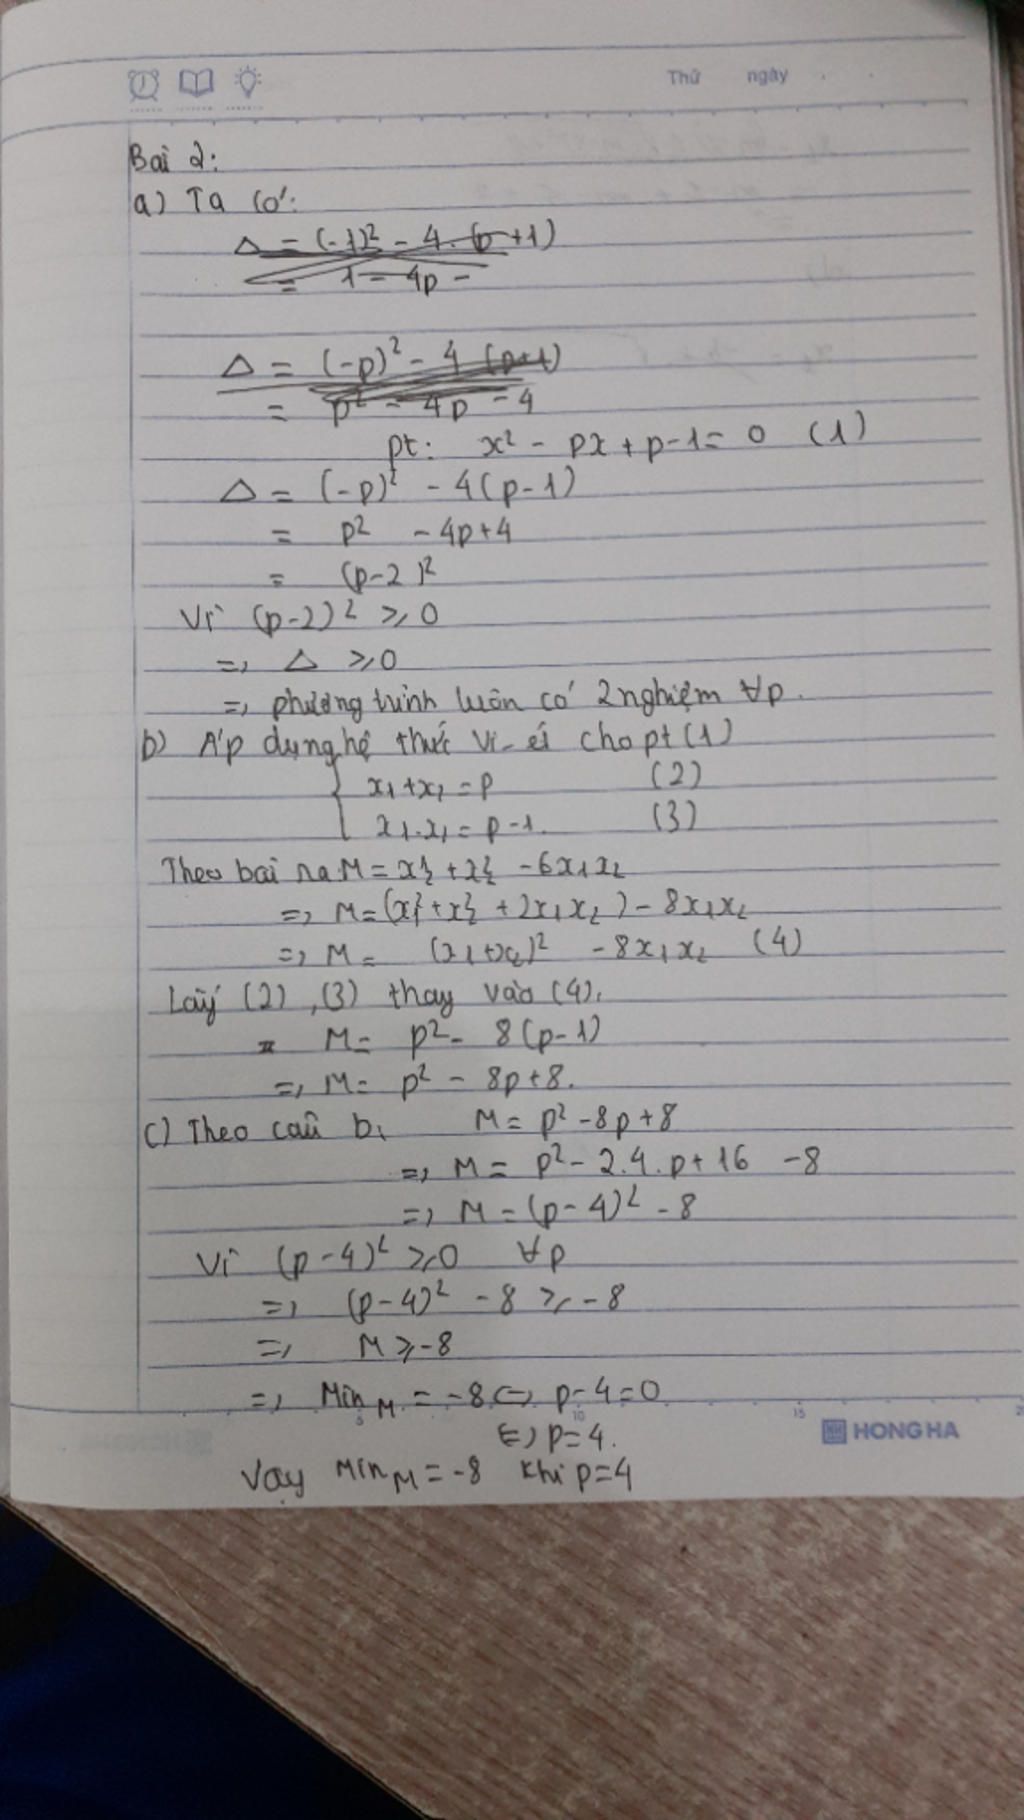 Thứ ngày
Bài 2:
a) Ta có:
Δ = (-1)² - 4.(p+1)
= 1 - 4p -
Δ = (-p)² - 4 (p+1)
= p² - 4p - 4
pt: x² - px + p-1 = 0 (1)
Δ = (-p)² - 4(p-1)
= p² - 4p+4
= (p-2)²
Vì (p-2)² ≥ 0
=> Δ ≥ 0
=> phương trình luôn có 2 nghiệm ∀p.
b) Áp dụng hệ thức Vi-ét cho pt (1)
x₁+x₂ = p (2)
x₁.x₂ = p-1. (3)
Theo bài ra M = x₁² + x₂² - 6x₁x₂
=> M = (x₁² + x₂² + 2x₁x₂) - 8x₁x₂
=> M = (x₁+x₂)² - 8x₁x₂ (4)
Lấy (2), (3) thay vào (4).
M = p² - 8(p-1)
=> M = p² - 8p+8.
c) Theo câu b, M = p² - 8p+8
=> M = p² - 2.4.p + 16 - 8
=> M = (p-4)² - 8
Vì (p-4)² ≥ 0 ∀p
=> (p-4)² - 8 ≥ -8
=> M ≥ -8
=> Min M = -8 <=> p-4=0
5 10 15
<=> p=4.
HONG HA
Vậy Min M = -8 khi p=4